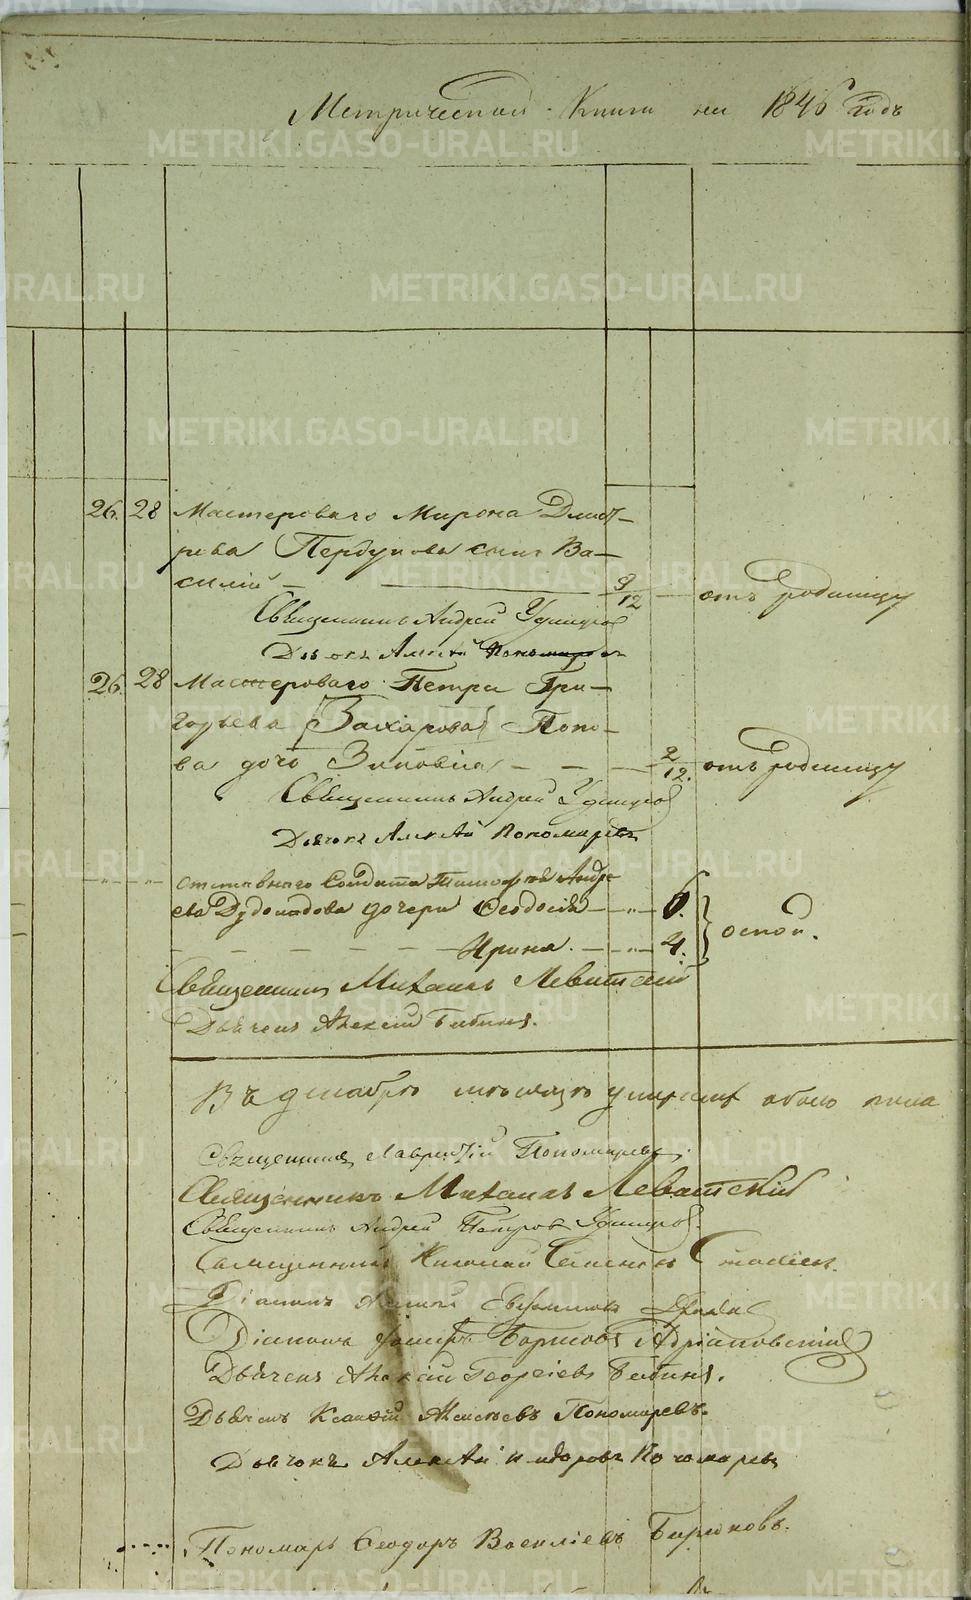 Метрической Книги на 1846 годъ
26. 28 Мастероваго Мирона Дмит-
рева сынъ Ва-
силий — 9/12 — отъ родимцу
Священникъ Андрей Удинцов
Дьячокъ Алексѣй Пономаревъ
26. 28 Мастероваго Петра Гри-
горьева (Захарова) Попо-
ва дочь Зиновия — 2/12. отъ родимцу
Священникъ Андрей Удинцов
Дьячокъ Алексѣй Пономаревъ
Отставнаго Солдата Тимофея Андре
ева дочери Феодосія — 6.
Ирина. — 4. } оспой.
Священникъ Михаилъ Левитский
Дьячекъ Алексій Бабинъ.
Въ декабрѣ мѣсяцѣ умершихъ обоего пола
Священникъ Лаврентій Пономаревъ.
Священникъ Михаилъ Левитский
Священникъ Андрей Петровъ Удинцовъ.
Священникъ Николай
Діаконъ Евфимовъ
Діаконъ Борисовъ Адриановский
Дьячекъ Алексій Георгіевъ Бабинъ.
Дьячекъ Алексѣевъ Пономаревъ.
Дьячокъ Алексѣй Исидоровъ Пономаревъ
Пономарь Феодоръ Василіевъ Бирюковъ.
METRIKI.GASO-URAL.RU